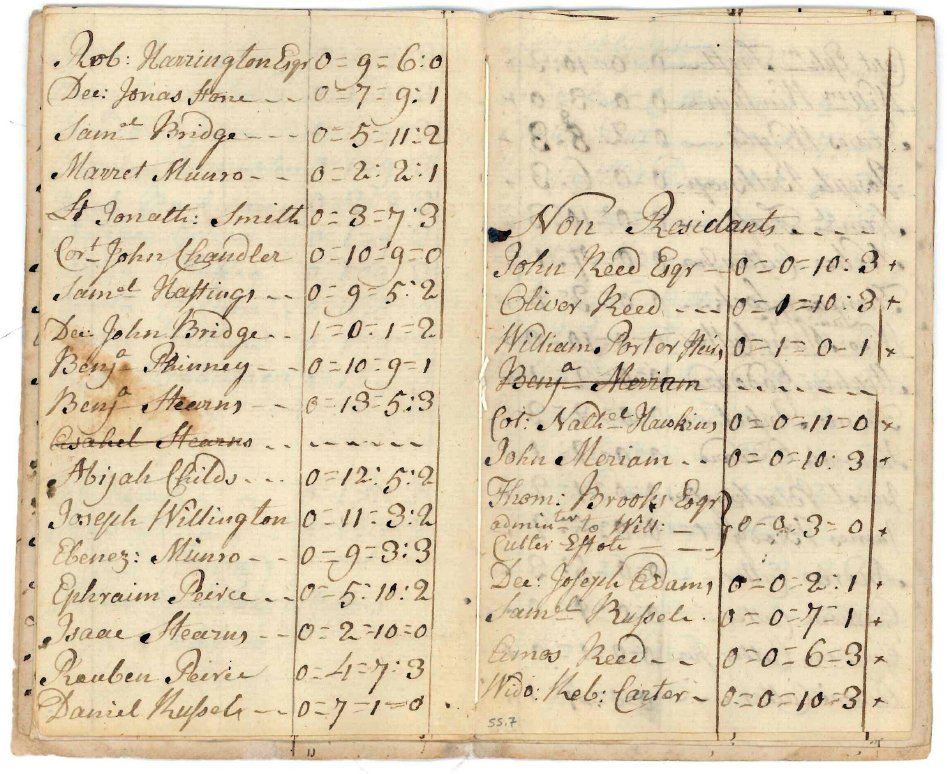 Rob: Harrington Esqr 0=9=6:0
Dec: Jonas Stone -- 0=7=9:1
Samel Bridge --- 0=5=11:2
Marret Munro -- 0=2:2:1
Lt Jonath: Smith 0=3=7:3
Cort John Chandler 0=10=9=0
Samel Hastings -- 0=9=5:2
Dec: John Bridge -- 1=0=1=2
Benja Phinney -- 0=10=9=1
Benja Stearns -- 0=13=5:3
Asahel Stearns -- ------
Abijah Childs --- 0=12:5:2
Joseph Willington 0=11=3:2
Ebenez: Munro -- 0=9=3:3
Ephraim Peirce -- 0=5:10:2
Isaac Stearns -- 0=2=10=0
Reuben Peirce 0=4=7:3
Daniel Russele -- 0=7=1=0
Non Residants ----
John Reed Esqr -- 0=0=10:3 +
Oliver Reed --- 0=0=10:3 +
William Porter Heirs 0=1=0=1 +
Benja Meriam ------
Col: Nathel Hawkins 0=0=11=0 +
John Meriam -- 0=0=10:3 +
Thom: Brooks Esqr
adminter to Will: 0=9:3=0 +
Cutler Estate ----
Dec: Joseph Adams 0=0=2:1 +
Samel Russele 0=0=7=1 +
Amos Reed -- 0=0=6=3 +
Wido: Reb: Carter - 0=0=10=3 +
55.7